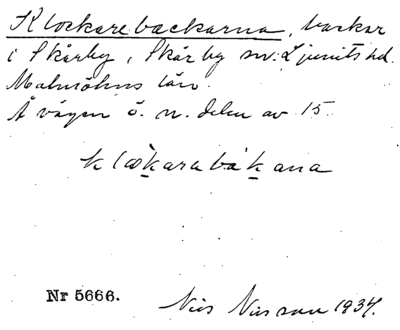 Klockarebackarna, backar
i Skårby, Skårby sn: Ljunits hd.
Malmöhus län.
Å vägen ö. n. delen av 15.
klåkarabákana
Nr 5666.
Nils Nilsson 1934.